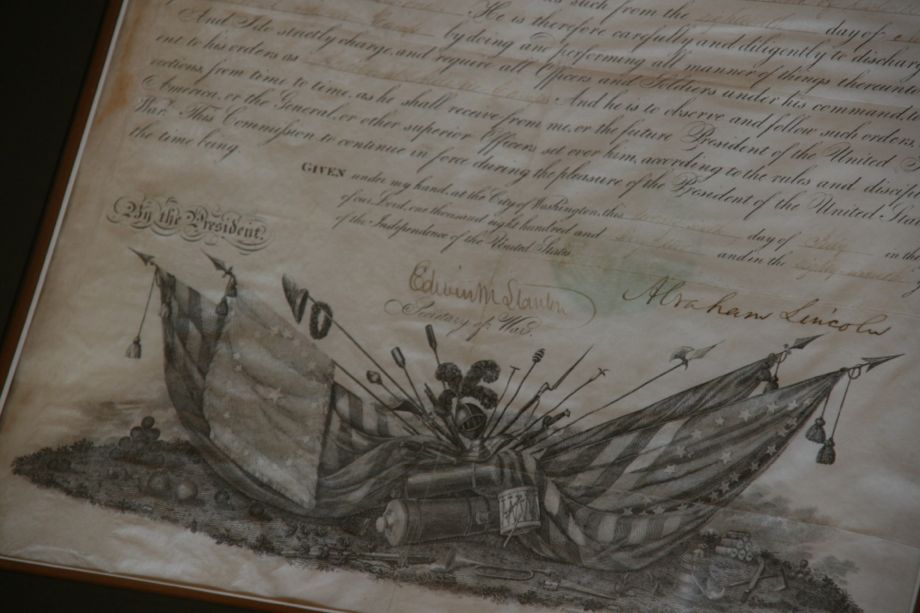 as such from the eighteenth day of
He is therefore carefully and diligently to discharge
by doing and performing all manner of things thereunto
And I do strictly charge, and require all Officers and Soldiers under his command,
ent to his orders as And he is to observe and follow such orders,
rections, from time to time, as he shall receive from me, or the future President of the United
America, or the General, or other superior Officers set over him, according to the rules and discipl
War. This Commission to continue in force during the pleasure of the President of the United Stat
the time being.
GIVEN under my hand, at the City of Washington, this day of in the
of our Lord, one thousand eight hundred and and in the
of the Independence of the United States.
By the President.
Edwin M Stanton
Secretary of War.
Abraham Lincoln